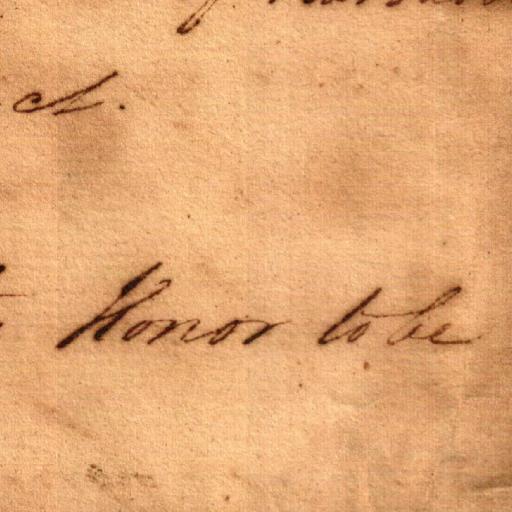 ct.
Honor to be